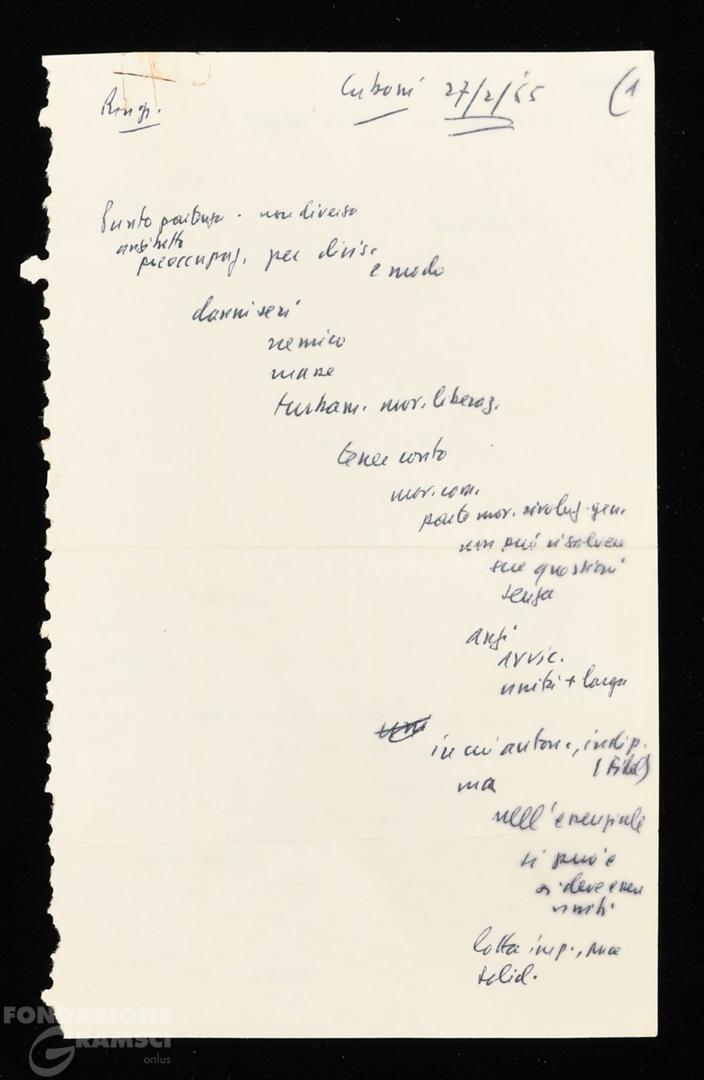 Cubani 27/2/65 (1
Ringr.
Punto partenza . non diverso
anzitutto
preoccupaz. per divis.
e modo
danni seri
nemico
masse
turbam. mov. liberaz.
tener conto
mov. com.
parte mov. rivoluz. gen.
non può risolvere
sue questioni
senza
anzi
avvic.
unità + larga
in cui auton., indip.
(Fidel)
ma
nell'essenziale
si può e
si deve essere
uniti
lotta imp., pace
solid.
FONDAZIONE
GRAMSCI
onlus